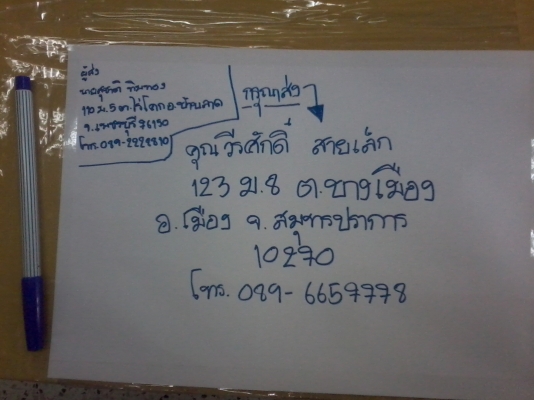 ผู้ส่ง
นายสุชาติ ทิมทอง
110 ม.5 ต.ไร่โคก อ.บ้านลาด
จ.เพชรบุรี 76150
โทร.089-2222810
กรุณาส่ง
คุณวีรศักดิ์ สายเล็ก
123 ม.8 ต.บางเมือง
อ.เมือง จ.สมุทรปราการ
10270
โทร. 089-6657778